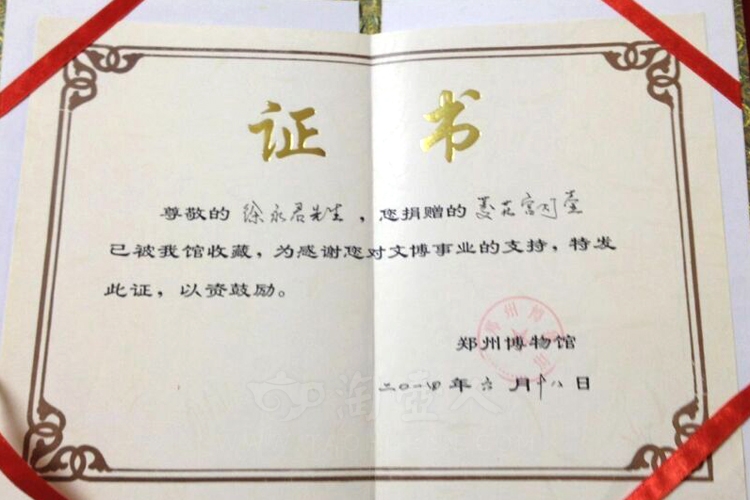 证书
尊敬的 徐永君先生，您捐赠的 菱花宫灯壶
已被我馆收藏，为感谢您对文博事业的支持，特发
此证，以资鼓励。
郑州博物馆
二〇一四年六月十八日
淘壶人